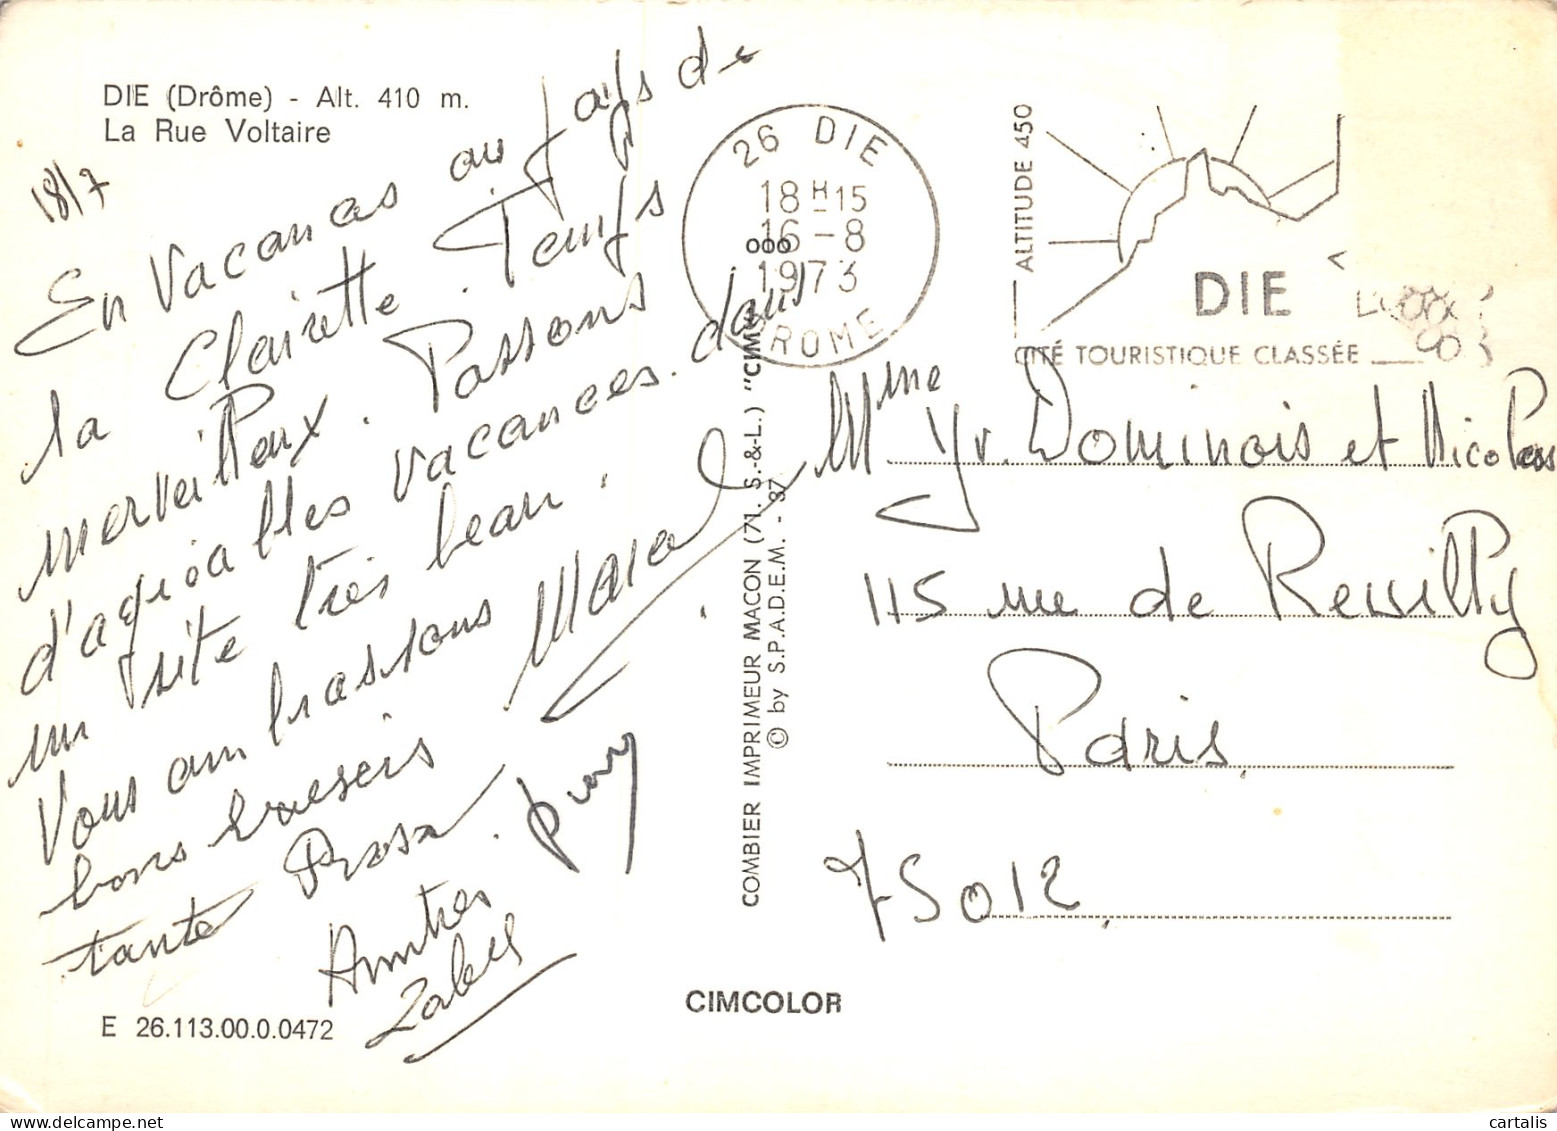 DIE (Drôme) - Alt. 410 m.
La Rue Voltaire
18/7
En Vacances au pays de
la Clairette. Temps
merveilleux. Passons
d'agréables vacances dans
un site très beau.
Vous embrassons Marcel
bons baisers
tante Rosa.
E 26.113.00.0.0472
26 DIE
18H15
16-8
1973
DROME
COMBIER IMPRIMEUR MACON (71. S.-&-L.) "CIM"
© by S.P.A.D.E.M. - 37
ALTITUDE 450
DIE
CITÉ TOURISTIQUE CLASSÉE
Mme Yv. Dominois et Nicolas
115 rue de Reuilly
Paris
75012
CIMCOLOR
cartalis